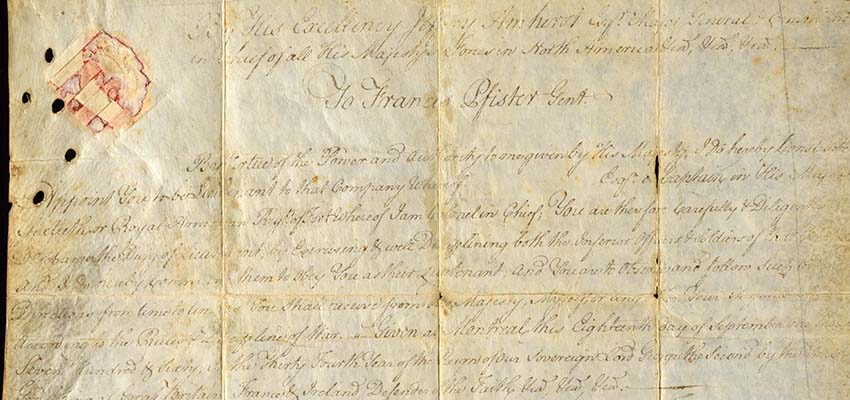 By His Excellency Jeffery Amherst Esqr. Major General & Command
in Chief of all His Majesty's Forces in North America &ca, &ca, &ca.
To Francis Pfister Gent.
By Virtue of the Power and Authority to me given by His Majesty, I do hereby Constitute
Appoint You to be Lieutenant to that Company Whereof Esqr. is Captain, in His Majes
or Royal American Regt. of Foot Whereof I am Colonel in Chief; You are therefore Carefully & Diligently
Discharge the Duty of Lieutenant, by Exercising & well Disciplining both the Inferior Officers & Soldiers of
and I do hereby Command them to Obey You as their Lieutenant, And You are to Observe and follow Such O
Directions from time to time as You Shall receive from His Majesty, Myself, or any other Your Superior
According to the Rules & Discipline of War. Given at Montreal this Eighteenth day of September one thou
Seven Hundred & Sixty, in the Thirty Fourth Year of the Reign of Our Sovereign Lord George the Second by the Grace
God King of Great Britain, France & Ireland, Defender of the Faith &ca, &ca, &ca.